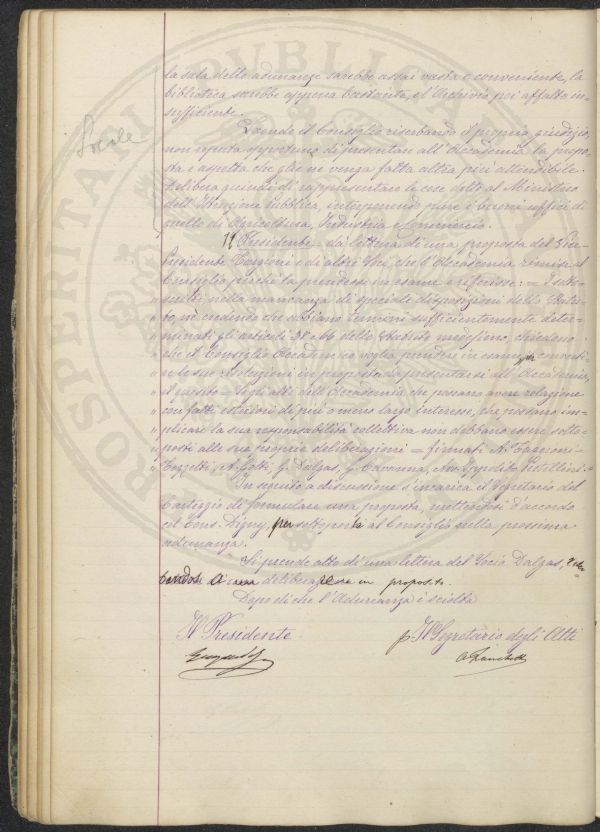 la sala delle adunanze sarebbe assai vasta e conveniente, la
biblioteca sarebbe appena bastante, e l'Archivio poi affatto in-
sufficiente.
Locale
Laonde il Consiglio riserbando il proprio giudizio,
non reputa opportuno di presentare all'Accademia la propo-
sta e aspetta che gliene venga fatta altra più attendibile.
Delibera quindi di rappresentare le cose dette al Ministero
dell'Istruzione Pubblica, interponendo pure i buoni uffici di
quello di Agricoltura, Industria e Commercio.
Il Presidente dà lettura di una proposta del Vice-
Presidente Tozzetti e di altri Soci, che l'Accademia rimise al
Consiglio perché la prendesse in esame e riferisse: = I sotto-
" scritti nella mancanza di speciale disposizioni dello Statu-
" to, ne credendo che abbiano termini sufficientemente deter-
" minati gli articoli 38 e 46 dello Statuto medesimo, chiedono
" che il Consiglio Accademico voglia prendere in esame, per converti-
" re le sue risoluzioni in proposta da presentarsi all'Accademia,
" il quesito = Se gli atti dell'Accademia che possano avere relazione
" con fatti esteriori di più o meno largo interesse, che possano im-
" plicare la sua responsabilità collettiva non debbano essere sotto-
" posti alle sue proprie deliberazioni = firmati A. Targioni-
" Tozzetti, A. Gotti, G. Dalgas, G. Cavanna, Avv. Ippolito
In seguito a discussione s'incarica il Segretario del
Carteggio di formulare una proposta, mettendosi d'accordo
col Cons. Digny, per sottoporla al Consiglio nella prossima
adunanza.
Si prende atto di una lettera del Socio Dalgas,
deliberazione in proposito.
Dopo di che l'Adunanza è sciolta
Il Presidente
p. Il Segretario degli Atti